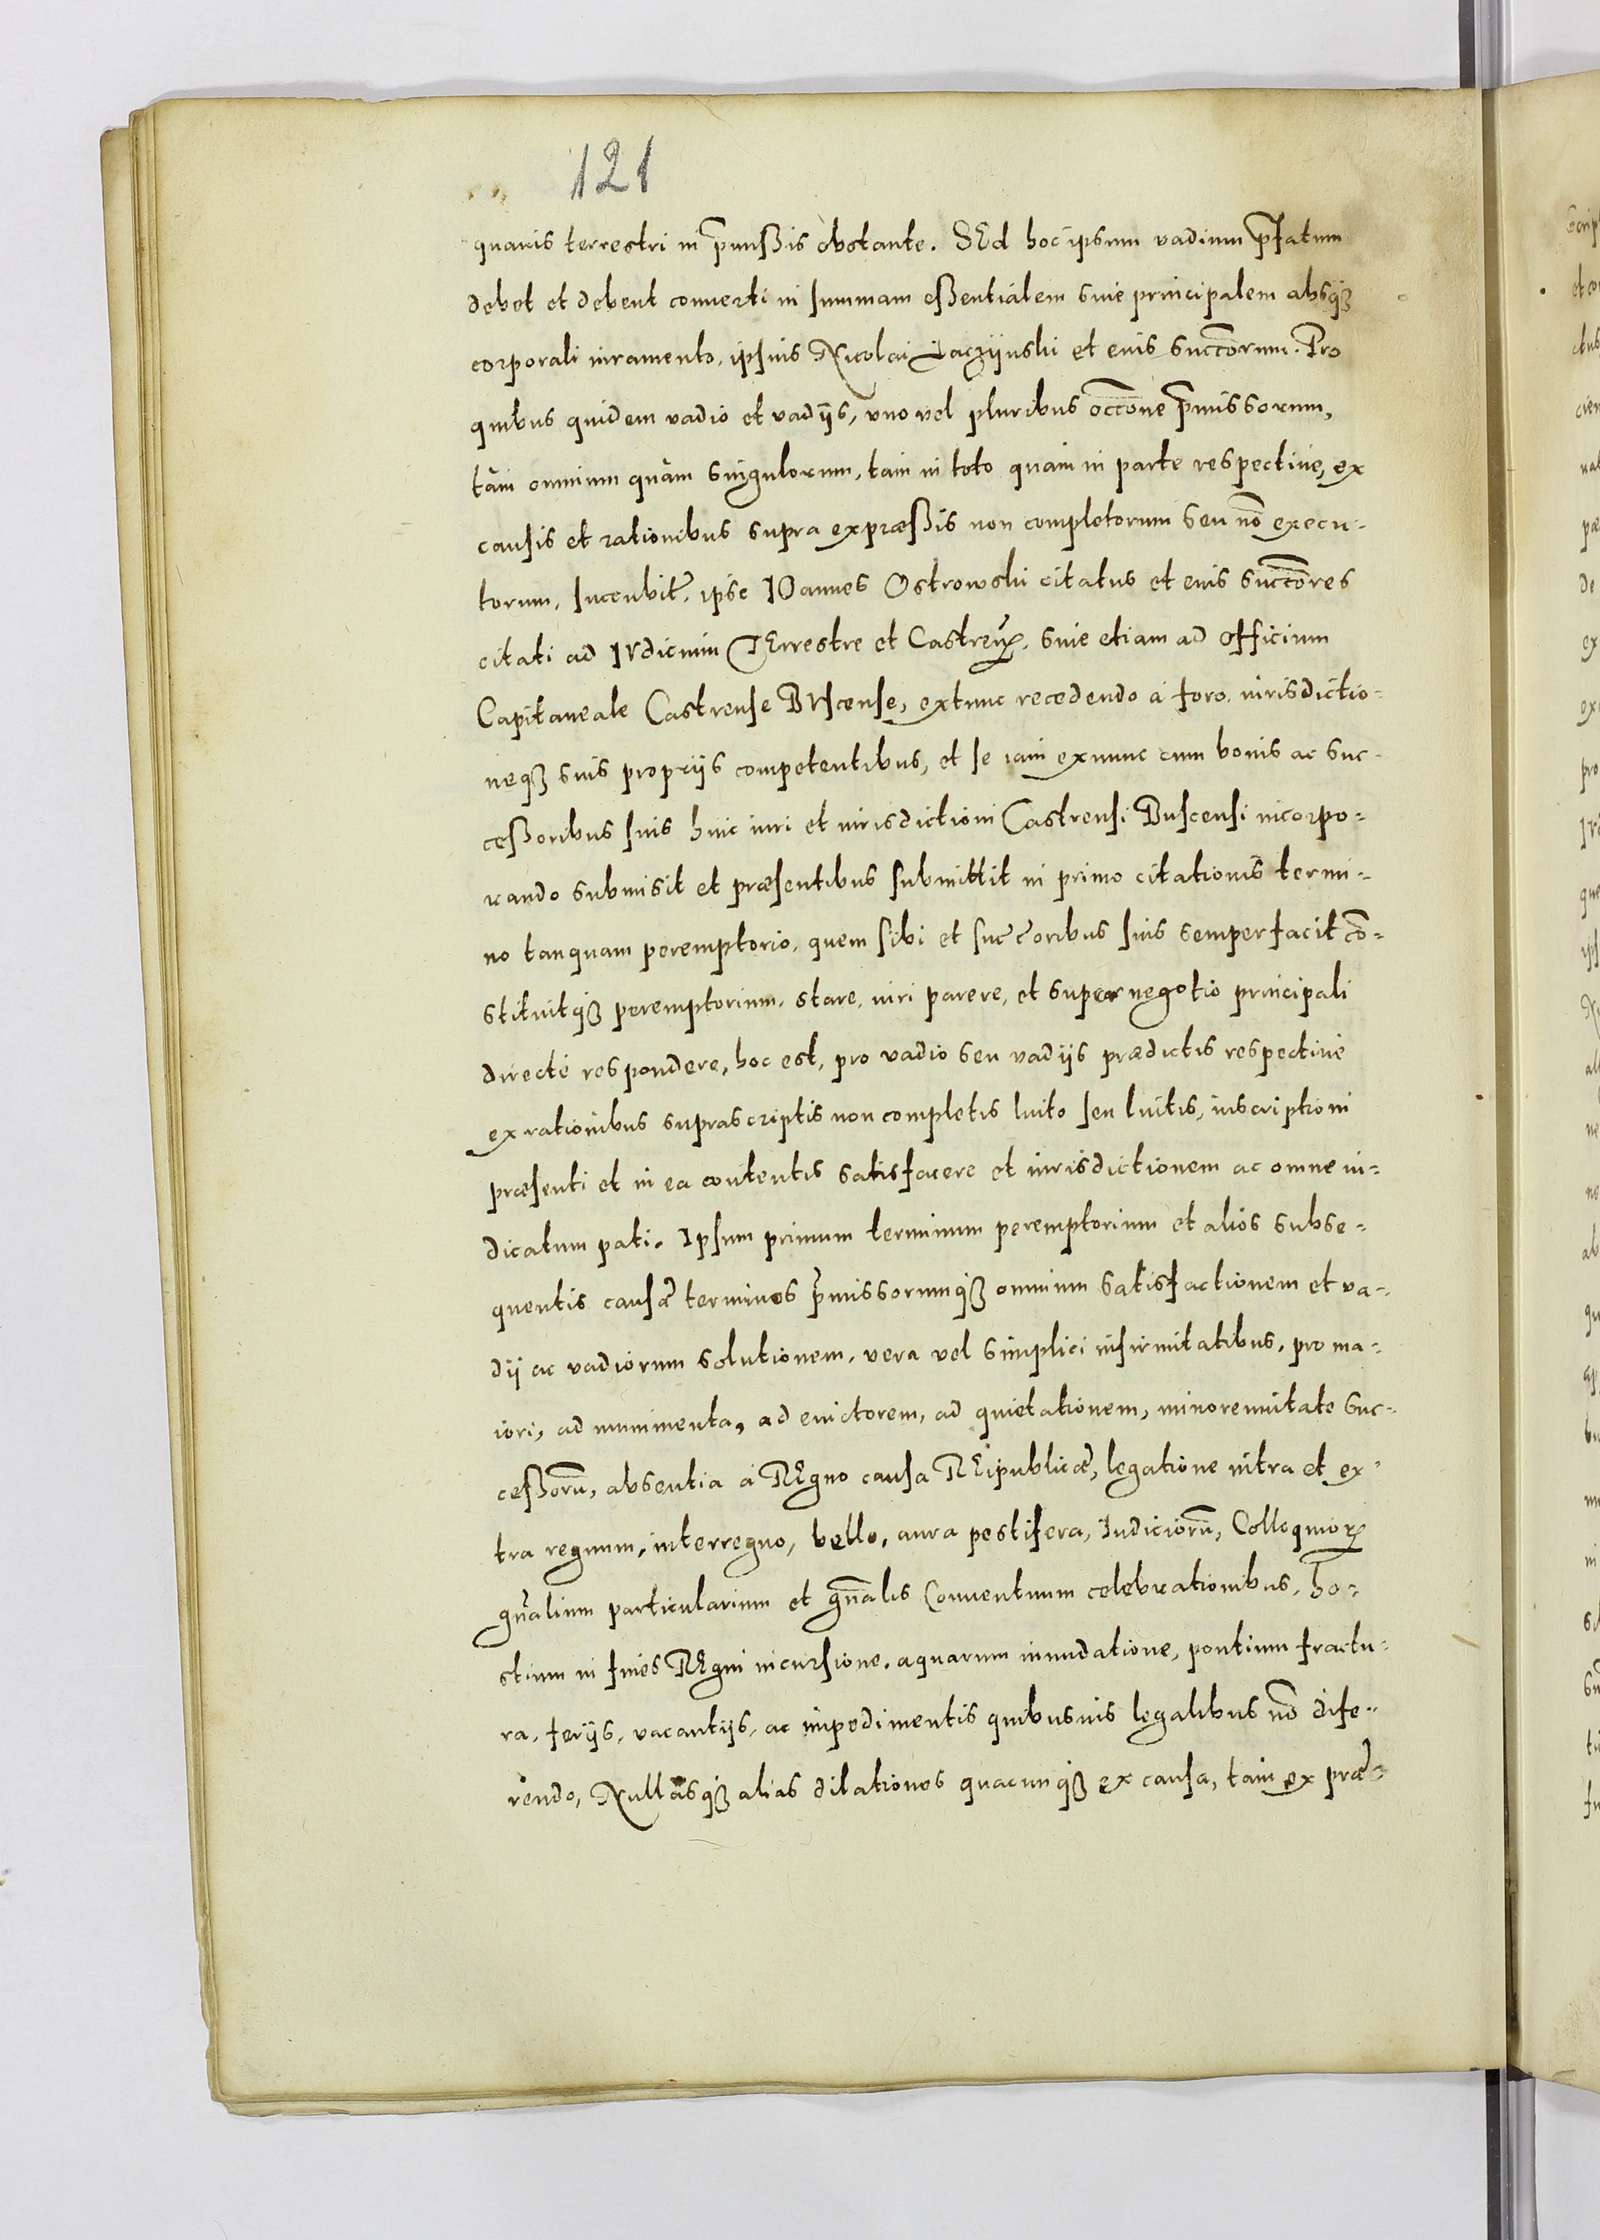 121
quauis terrestri in p̃missis obstante. SEd hoc ipsum vadium p̃fatum
debet et debent conuerti in summam essentialem siue principalem absq́
corporali iuramento, ipsius Nicolai Jaczÿnski et eius succ̃orum. Pro
quibus quidem vadio et vadijs, vno vel pluribus occ̃one p̃missorum,
tàm omnium quàm singulorum, tam in toto quam in parte respectiue, ex
causis et rationibus supra expræssis non completorum seu nõ execu-
torum, Incenbit̃, ipse IOannes Ostrowski citatus et eius succ̃ores
citati ad IVdicium TErrestre et Castreñ, siue etiam ad Officium
Capitaneale Castrense BVscense, extunc recedendo á foro, iurisdictio-
neq́ suis proprijs competentibus, et se iam exnunc cum bonis ac suc-
cessoribus suis huic iuri et iurisdictioni Castrensi Buscensi incorpo-
rando submisit et præsentibus submittit in primo citationis termi-
no tanquam peremptorio, quem sibi et succ̃oribus suis semper facit cõ-
stituitq́ peremptorium, stare, iuri parere, et super negotio principali
directè respondere, hoc est, pro vadio seu vadijs prædictis respectiuè
ex rationibus suprascriptis non completis luito seu luitis, inscriptioni
præsenti et in ea contentis satisfacere et iurisdictionem ac omne iu-
dicatum pati. Ipsum primum terminum peremptorium et alios subse-
quentis causæ terminos p̃missorumq́ omnium satisfactionem et va-
dij ac vadiorum solutionem, vera vel simplici infirmitatibus, pro ma-
iori, ad munimenta, ad euictorem, ad quietationem, minorennitate suc-
cessorũ, absentia á REgno causa REipublicæ, legatione intra et ex-
tra regnum, interregno, bello, aura pestifera, Iudiciorũ, Colloquiorꝝ
gñalium particularium et gñalis Conuentuum celebrationibus, ho-
stium in fines REgni incursione, aquarum inundatione, pontium fractu-
ra, ferijs, vacantijs, ac impedimentis quibusuis legalibus nõ dife-
rendo, Nullasq́ alias dilationes quacunq́ ex causa, tam ex præ-